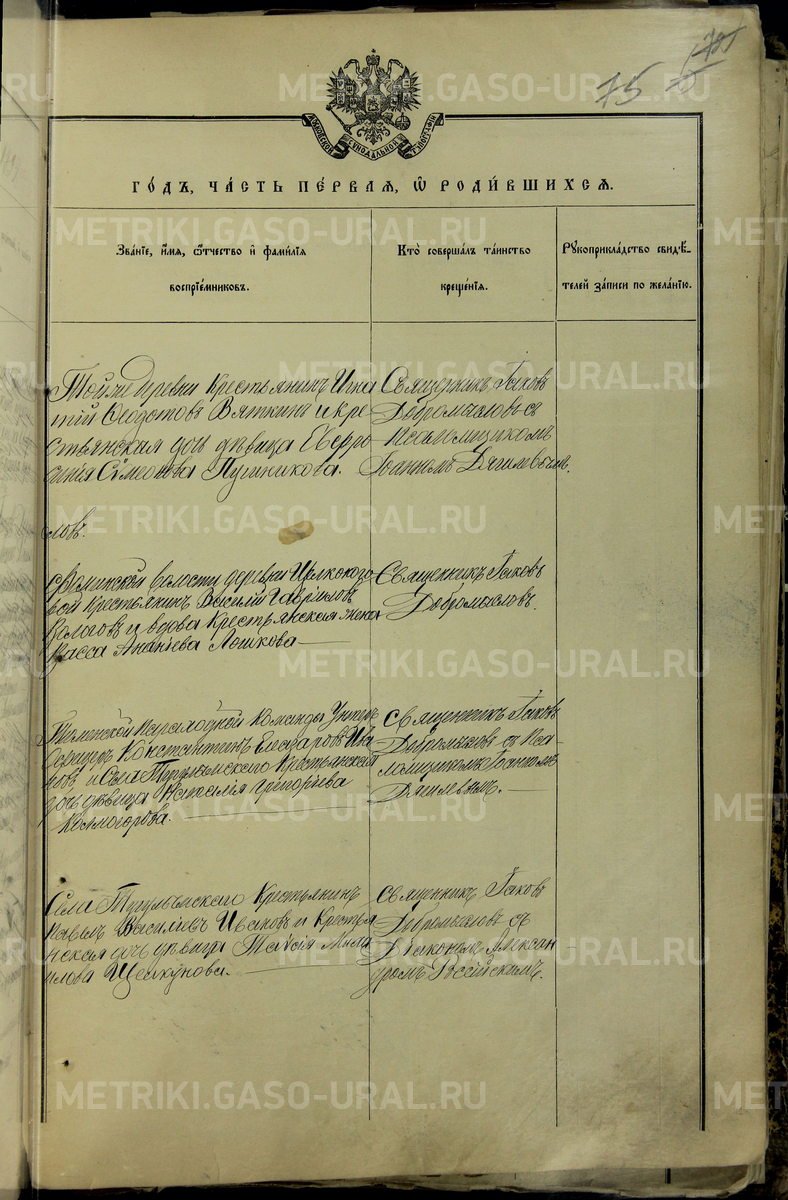 75
МОСКОВСКОЙ СѴНОДАЛЬНОЙ ТѴПОГРАФІИ
ГОДЪ, ЧАСТЬ ПЕРВАЯ, Ѡ РОДИВШИХСЯ.
Званіе, имя, ѿчество и фамилія воспріемниковъ.
Кто совершалъ таинство крещенія.
Рукоприкладство свидѣтелей записи по желанію.
Той же деревни Крестьянинъ Игна
тій Ѳеодотовъ Вяткинъ и кре
стьянская дочь дѣвица Евфро
синія Сѵмеонова Пушникова.
Священникъ Іаковъ
Добромысловъ съ
Псаломщикомъ
Іоанномъ Дягилевымъ.
ловъ.
волости деревни
вой Крестьянинъ Василій Гавріиловъ
и вдова Крестьянская жена
Васса Ананіева Лошкова
Священникъ Іаковъ
Добромысловъ.
Тюменской Команды Унтеръ
Офицеръ Константинъ Елеазаровъ Ива
новъ и Села Тугулымскаго Крестьянская
дочь дѣвица Наталія Григоріева
Колмогорова.
Священникъ Іаковъ
Добромысловъ съ Пса-
ломщикомъ Іоанномъ
Дягилевымъ.
Села Тугулымскаго Крестьянинъ
Павелъ Василіевъ Ивановъ и Крестья
нская дочь дѣвица Таисія Михаи
лова
Священникъ Іаковъ
Добромысловъ съ
Діакономъ Алексан
дромъ
METRIKI.GASO-URAL.RU